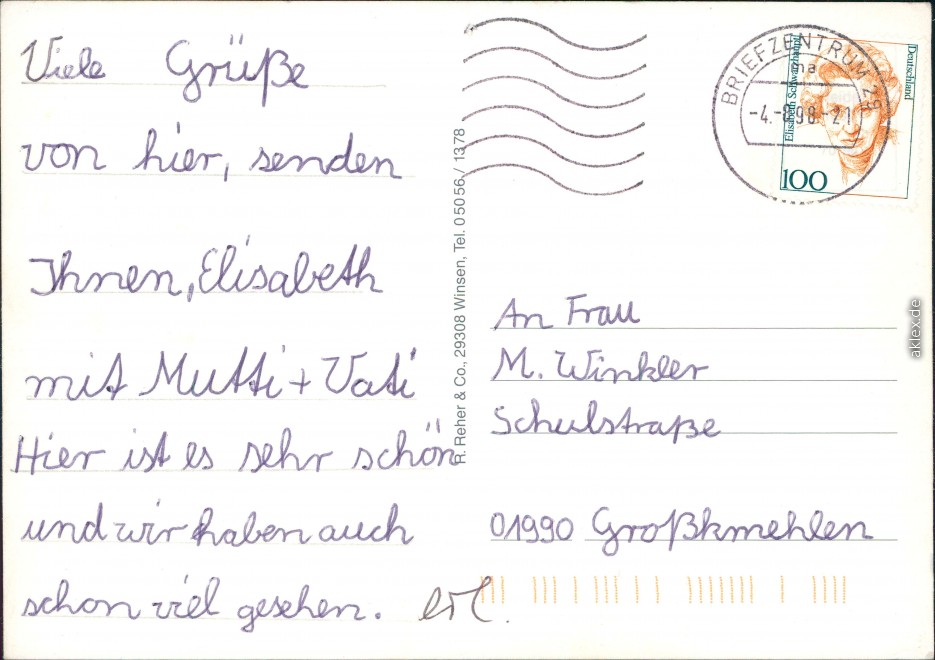 Viele Grüße
von hier, senden
Ihnen, Elisabeth
mit Mutti + Vati
Hier ist es sehr schön
und wir haben auch
schon viel gesehen. erl.
R. Reher & Co., 29308 Winsen, Tel. 0 50 56 / 13 78
BRIEFZENTRUM 29
ma
-4.-8.98.-21
Deutschland
Elisabeth Schwarzhaupt
100
An Frau
M. Winkler
Schulstraße
01990 Großkmehlen
aklex.de